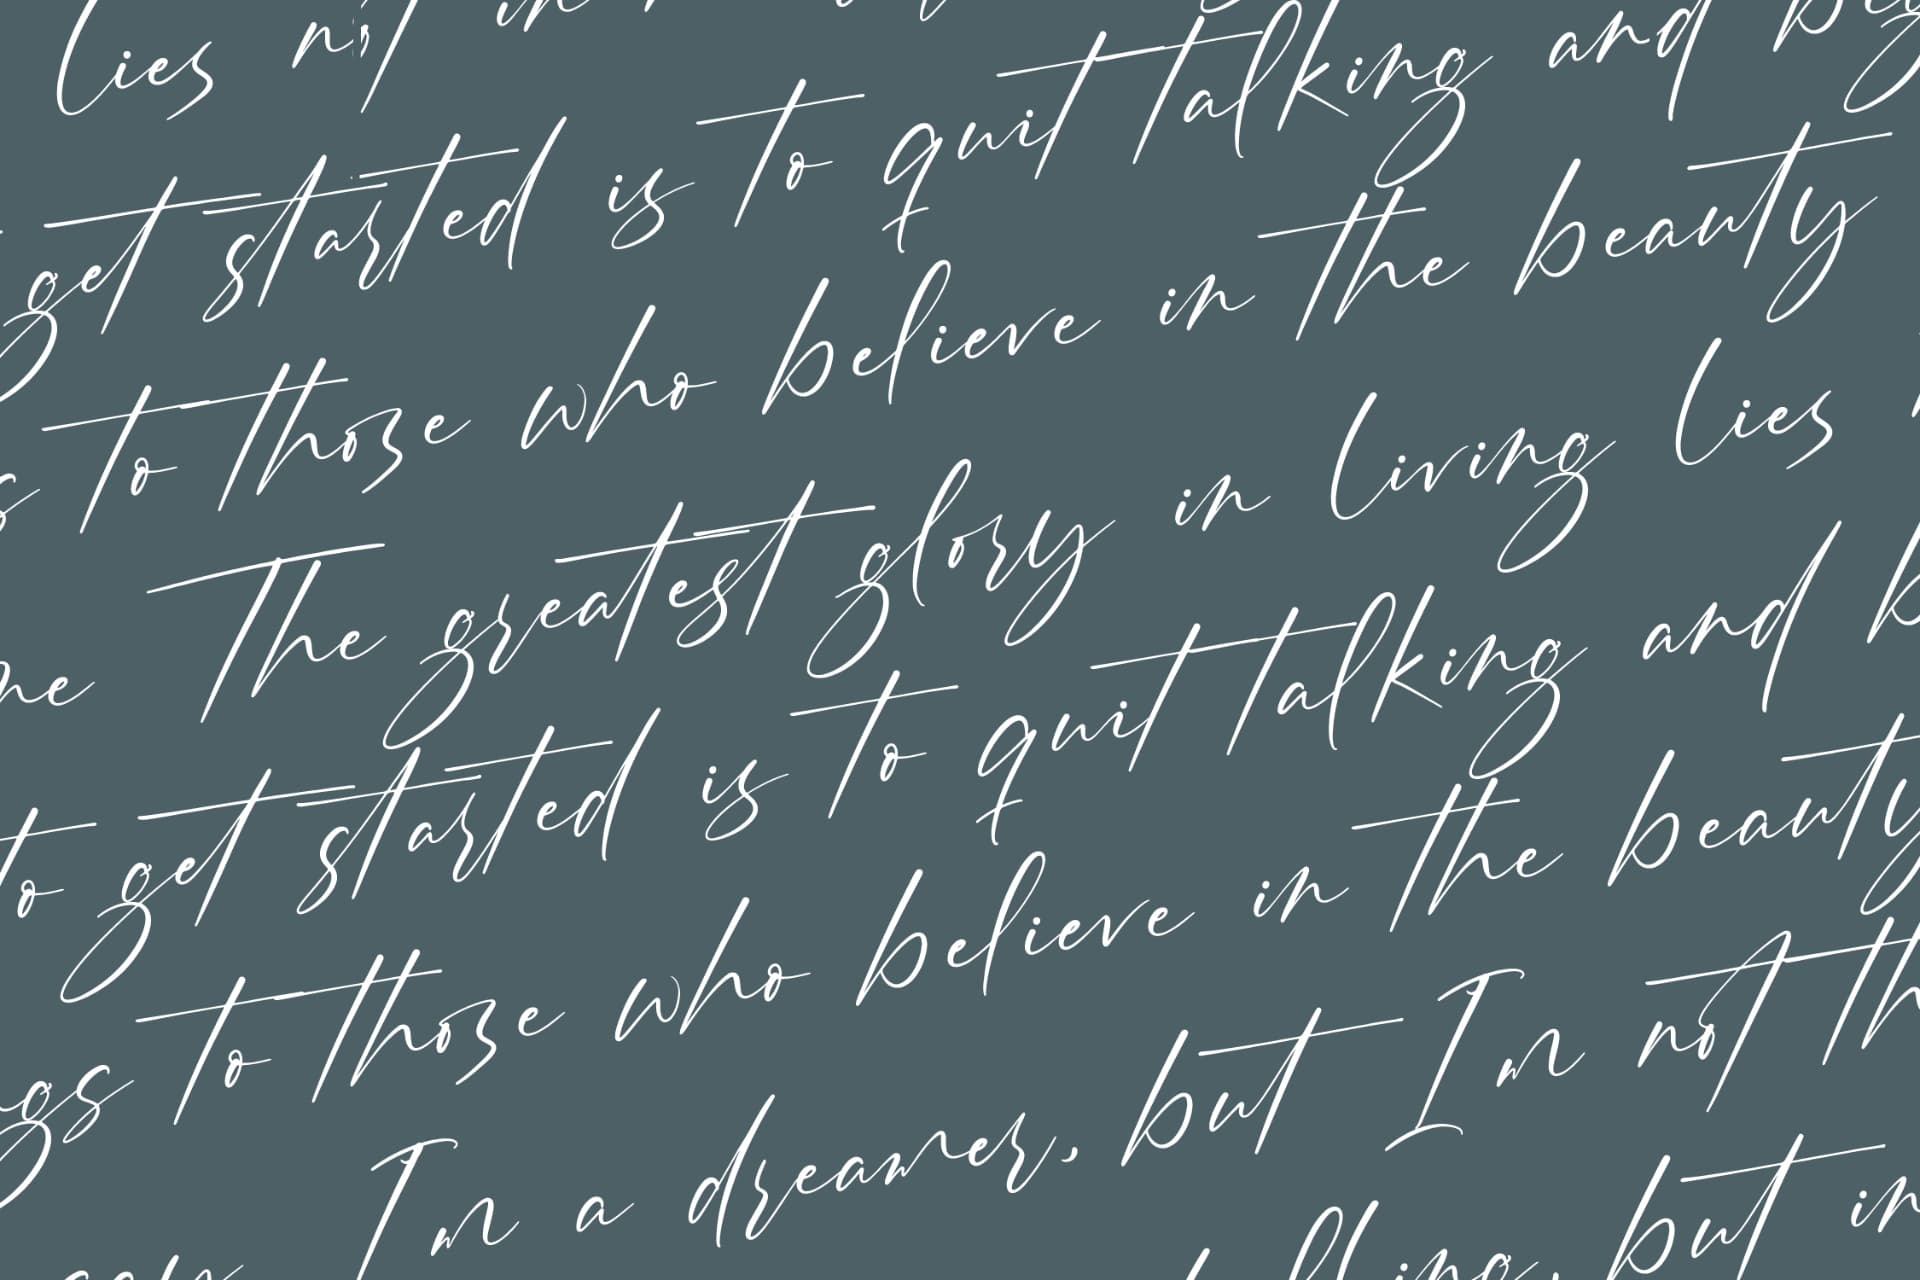 lies not in
get started is to quit talking and
to those who believe in the beauty
The greatest glory in living lies
to get started is to quit talking and
to those who believe in the beauty
Im a dreamer, but Im not
but in